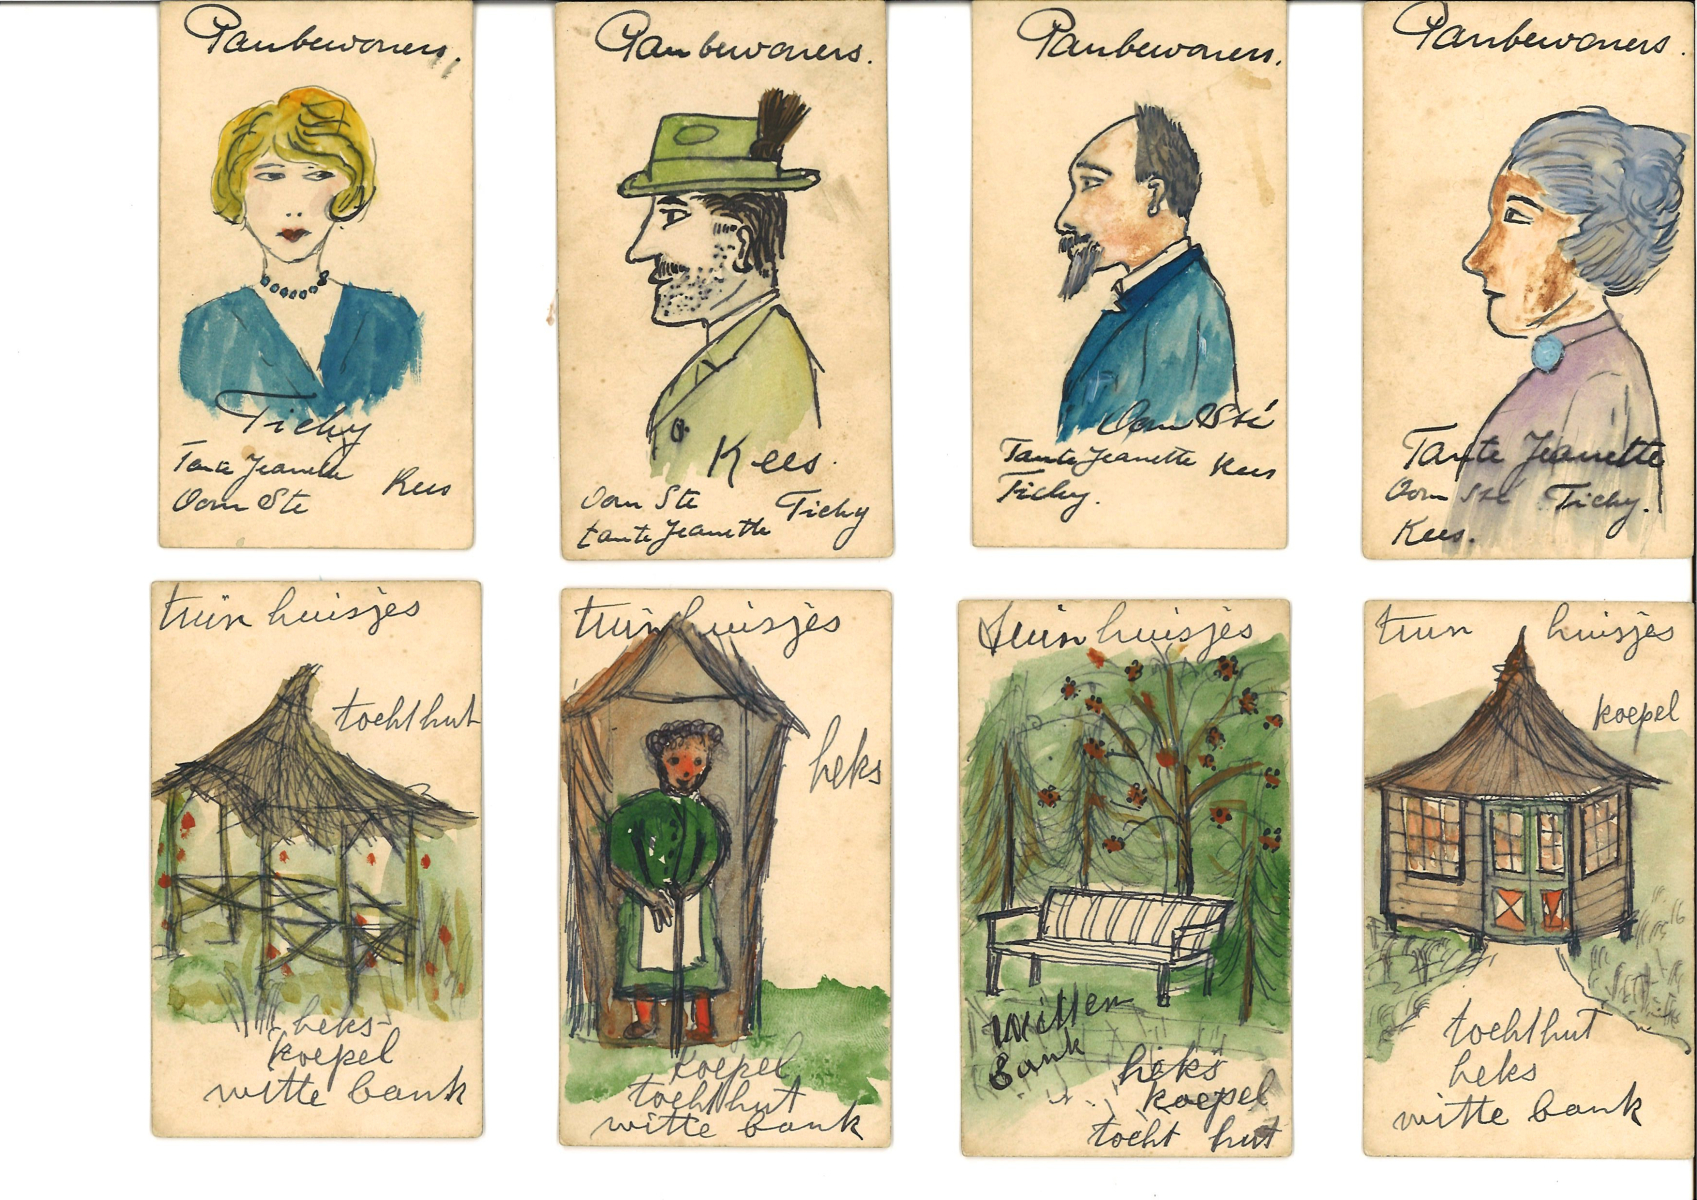 Panbewoners.
Tichy
Tante Jeanette
Kees
Oom Ste
Panbewoners.
Kees.
Oom Ste
Tichy
tante Jeanette
Panbewoners.
Oom Sté
Tante Jeanette Kees
Tichy.
Panbewoners.
Tante Jeanette
Oom Sté Tichy.
Kees.
tuin huisjes
tochthut
heks-
koepel
witte bank
tuin huisjes
heks
koepel
tochthut
witte bank
tuin huisjes
witten
bank
heks
koepel
tocht hut
tuin huisjes
koepel
tochthut
heks
witte bank